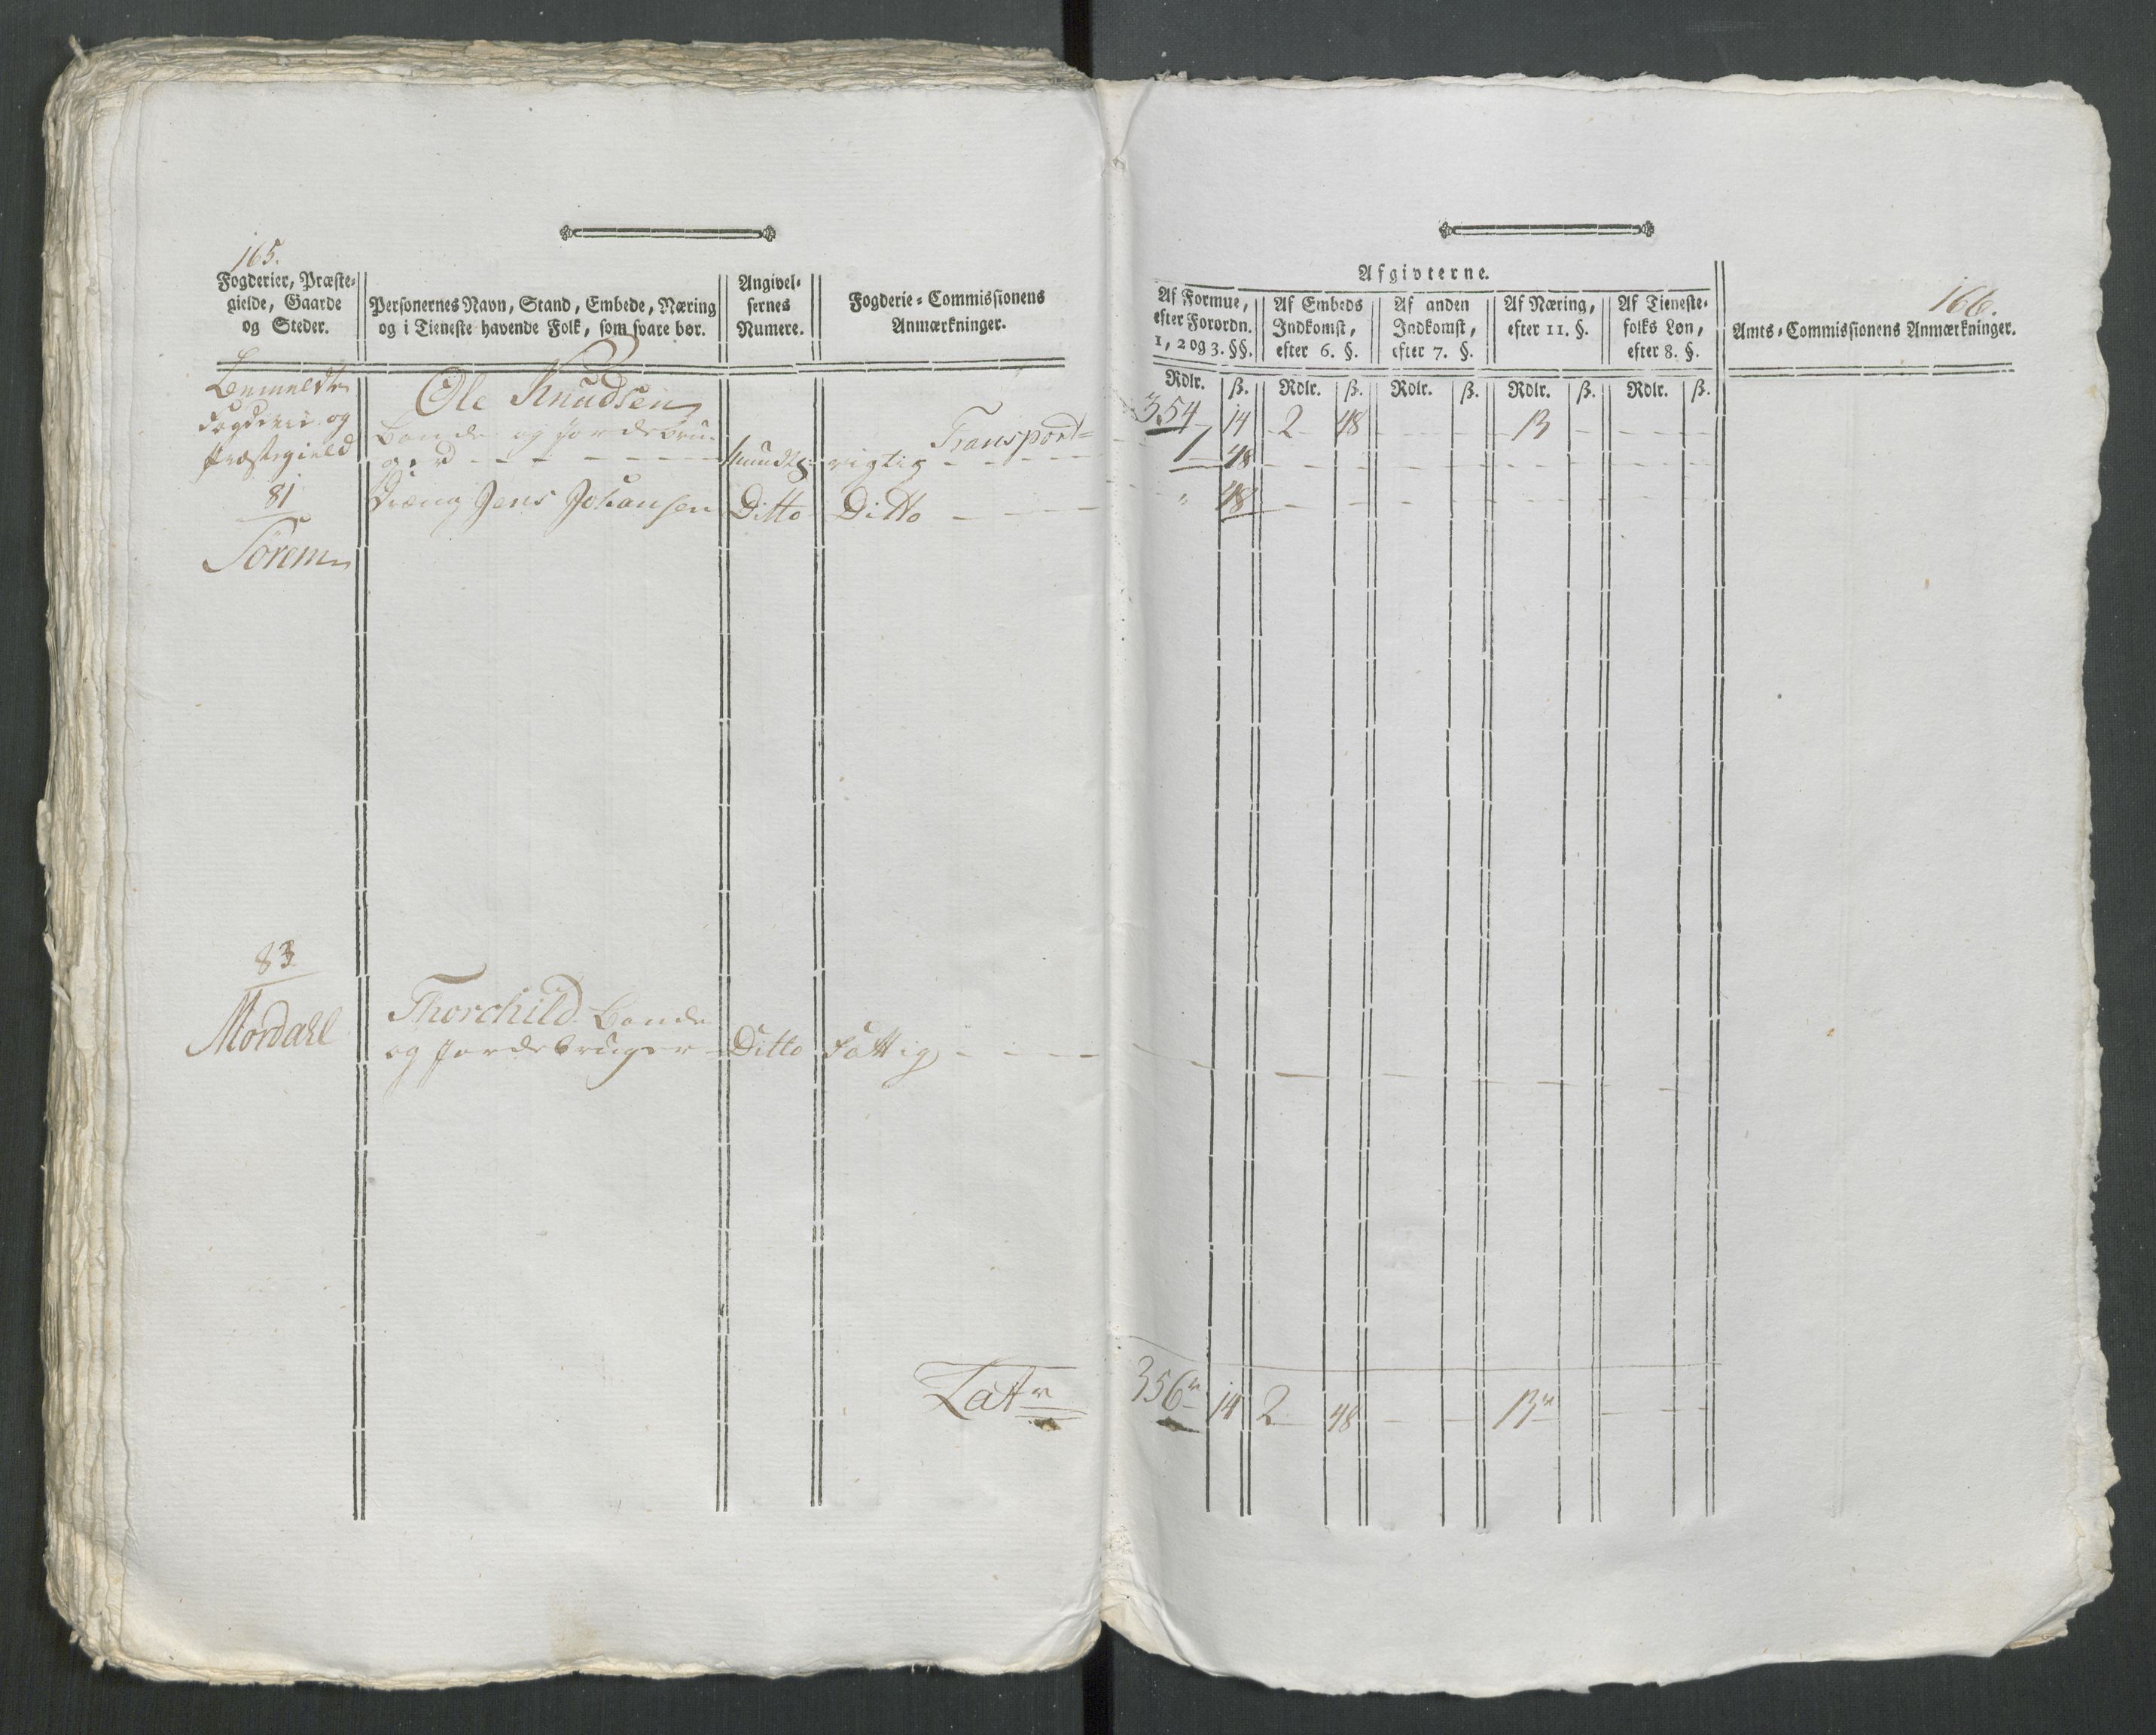 165.
Fogderier, Præste-
gielde, Gaarde
og Steder.
Personernes Navn, Stand, Embede, Næring
og i Tieneste havende Folk, som svare bør.
Angivel-
sernes
Numere.
Fogderie-Commissionens
Anmærkninger.
Bemeldte
Fogderie og
Præstegield
Ole Knudsen
Bonde og Jordebru-
ger
mundtl: rigtig
Transport
81
Dreng Jens Johansen Ditto Ditto
Sörem
83
Mordahl
Thorchild Bonde
og Jordebruger Ditto fattig
Latr
166.
Afgivterne.
Af Formue,
efter Forordn.
1, 2 og 3. §§.
Af Embeds
Indkomst,
efter 6. §.
Af anden
Indkomst,
efter 7. §.
Af Næring,
efter 11. §.
Af Tieneste-
folks Løn,
efter 8. §.
Amts-Commissionens Anmærkninger.
Rdlr. ß. Rdlr. ß. Rdlr. ß. Rdlr. ß. Rdlr. ß.
354 14 2 48 13
1 48
" 48
356 14 2 48 13